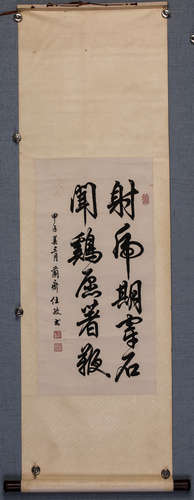 射虎期穿石
聞鷄屢著鞭
甲子 月 蘭齋任政書